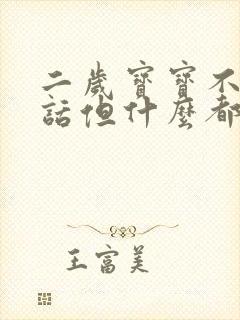 二歲寶寶不
話但什麼都
王富美